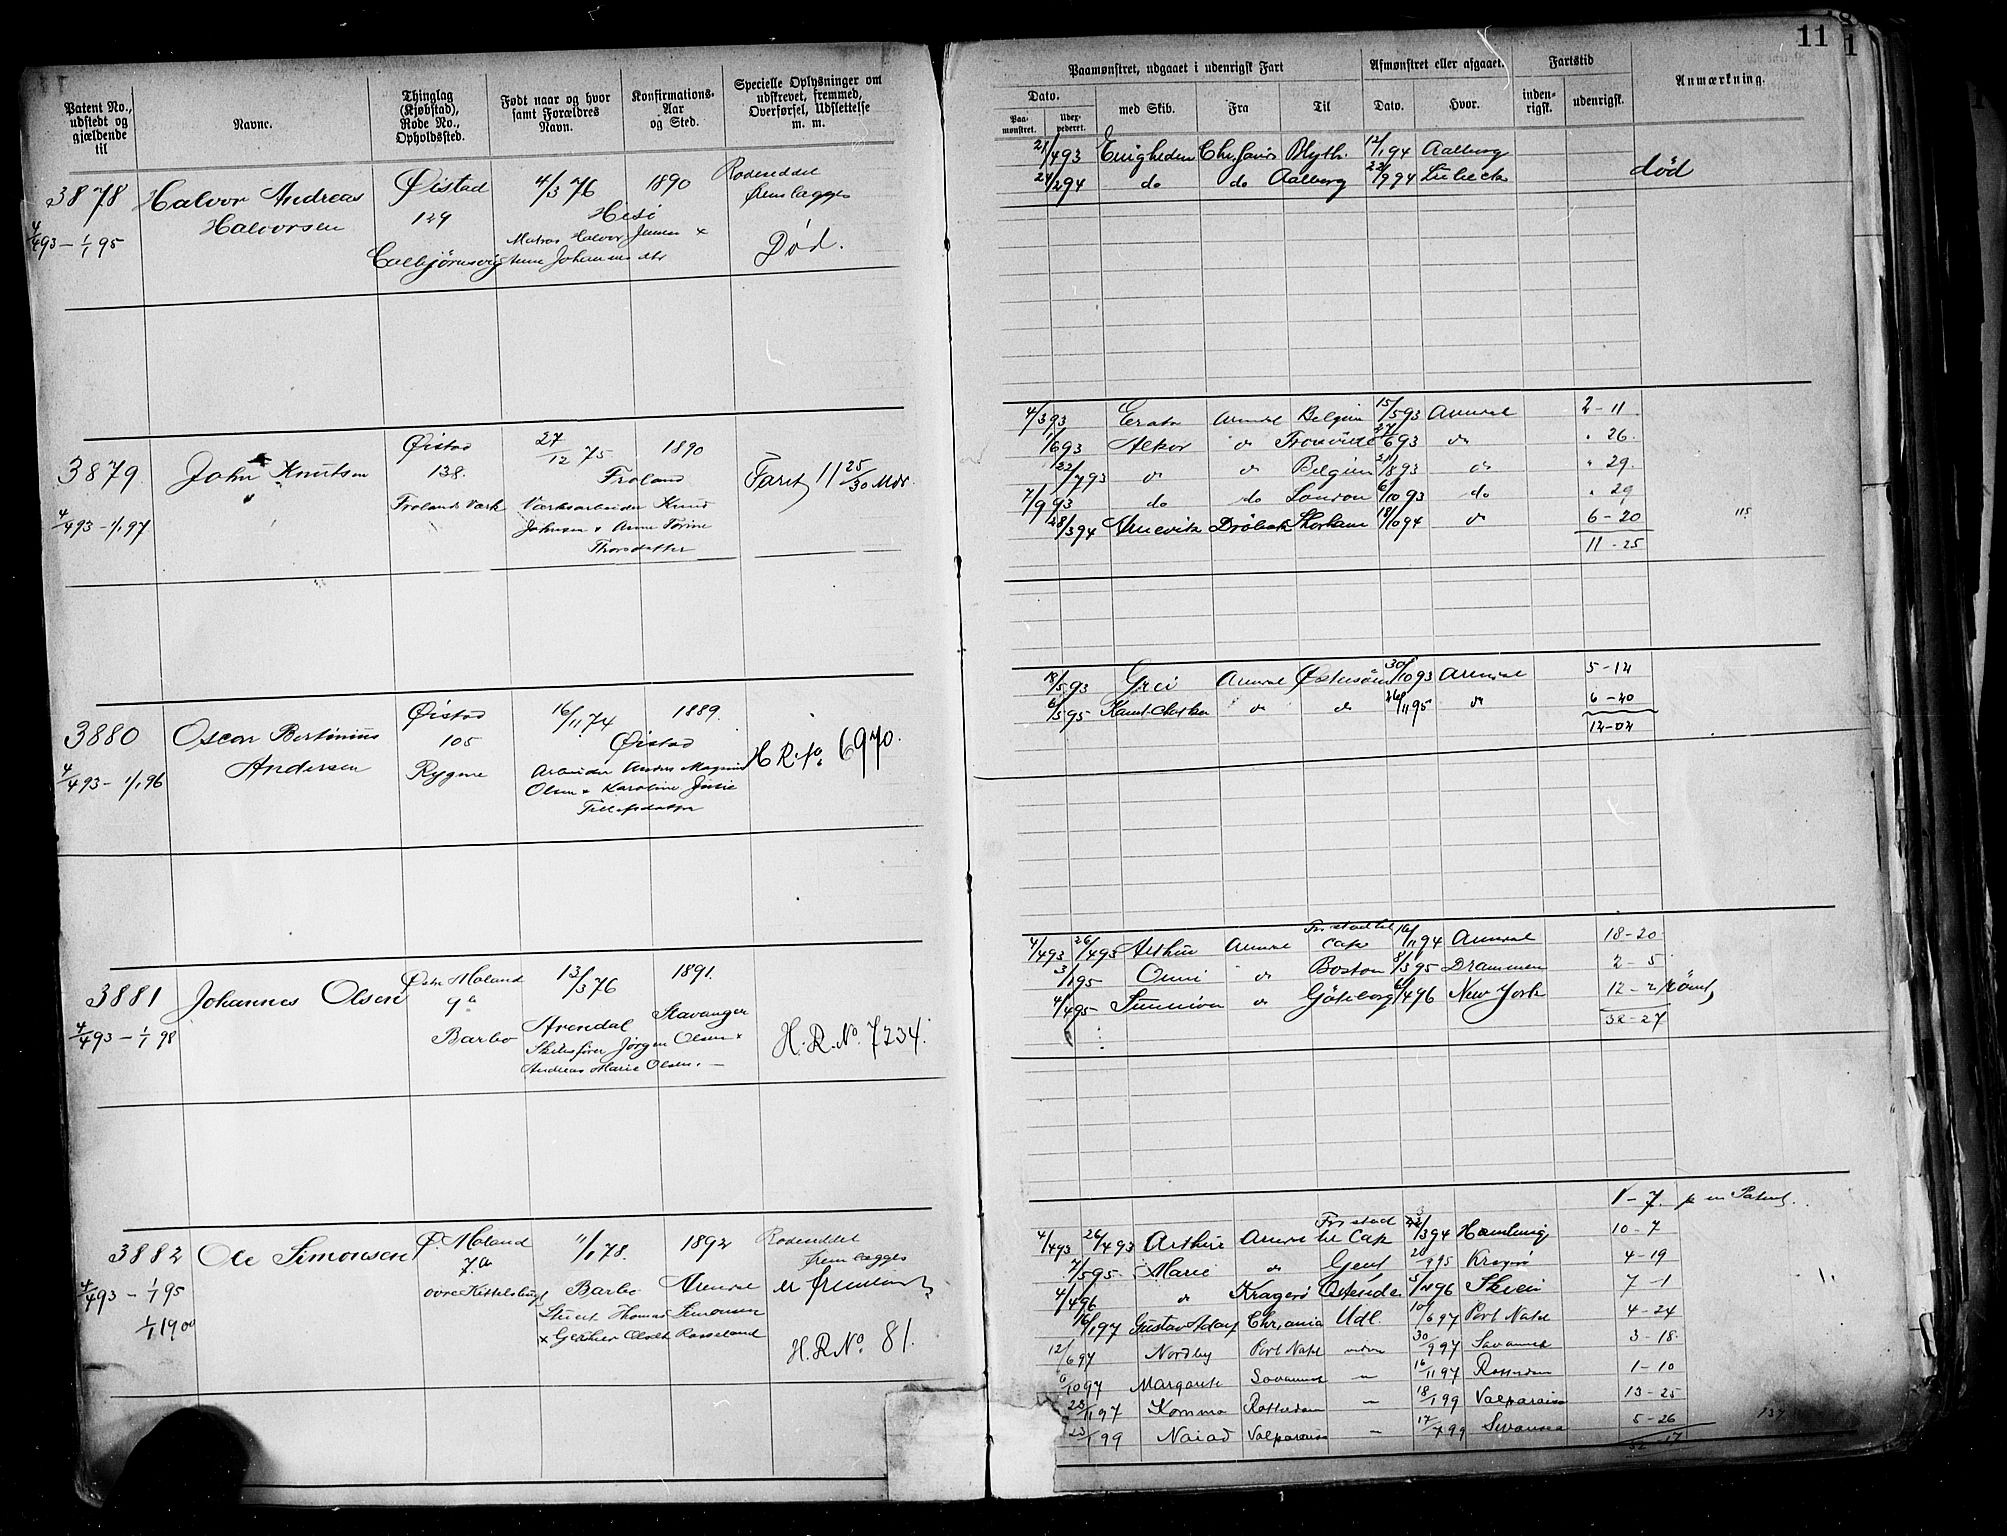 11
Patent No., udstedt og gjældende til
Navne.
Thinglag (Kjøbstad), Rode No., Opholdssted.
Født naar og hvor samt Forældres Navn.
Konfirmations-Aar og Sted.
Specielle Oplysninger om udskrevet, fremmed, Overførsel, Udslettelse m. m.
Paamønstret, udgaaet i udenrigsk Fart
Afmønstret eller afgaaet.
Fartstid
Anmærkning.
Dato.
Paa-mønstret.
Udex-pederet.
med Skib.
Fra
Til
Dato.
Hvor.
inden-rigsk.
udenrigsk.
3878
4/4 93 – 1/1 95
Halvor Andreas
Halvorsen
Øistad
129
4/3 76
Hisö
Matros Halvor Jensen x
1890
Rodeseddel
fremlægges
Død.
21/4 93 Enigheden Blyth. 12/1 94 Aalborg
do do Aalborg 22/9 94 Lübeck
død
3879
4/4 93 – 1/1 97
John Knutsen
Øistad
138.
Frolands Værk
27/12 75
Froland
Værksarbeider Knud
Johnsen x Anne Torine
Thorsdatter
1890
Faret 11 25/30 Mdr.
4/3 93 Erato Belgien 15/5 93 2 – 11
1/6 93 Alkor do 27/6 93 do " 26.
22/7 93 do do Belgien 21/8 93 do " 29.
7/9 93 do do London 6/10 93 do " 29
28/3 94 Drøbak 18/10 94 do 6 – 20
11 – 25
115
3880
4/4 93 – 1/1 96
Oscar Bertinius
Andersen
Øistad
105
Rygene
16/11 74
Øistad
Arbeider Anders Magnus
Olsen x Karoline Josie
Tellefsdatter
1889.
H. R. No. 6970.
18/5 93 Grei 30/10 93 5 – 12
6/5 95 do do 26/11 95 do 6 – 20
12 – 02
3881
4/4 93 – 1/1 98
Johannes Olsen
Østre Moland
9a
Barbo
13/3 76
Arendal
Skibsfører Jørgen Olsen x
Andrea Marie Olsen. —
1891.
Stavanger
H. R. No. 7234.
4/4 93 26/4 93 Arthur Cap 16/11 94 18 – 20
3/1 95 do Boston 8/3 95 Drammen 2 – 5
4/4 95 do Göteborg 4 96 New York 12 – 2 Rømt
32 – 27
3882
4/4 93 – 1/1 95
1/1 1900
Ole Simonsen
Ø. Moland
7.a
øvre Kittelsbugt
11/1 78.
Barbo
Stuert Thomas Simonsen
1892
Arendal
Rodeseddel
fremlægges
er fremlagt
H. R. No. 81.
1 – 7.
4/4 93 26/4 93 Arthur til Cap 3 94 10 – 7
7/5 95 Marie do Gent 95 Kragerø 4 – 19
4/4 96 do Kragerø Ostende 96 Skien 7 – 1
16/1 97 Gustav Adolf Chr.ania Udl. 10/6 97 Port Natal 4 – 24
12/6 97 Nordby Port Natal 30/9 97 Savannah 3 – 18
6/10 97 Margarete Savannah — 16/11 97 Rotterdam 1 – 10
23/11 97 Komma Rotterdam — 18/1 99 Valparaiso 13 – 25
23/1 99 Naiad Valparaiso — 17 99 Swansea 5 – 26
137